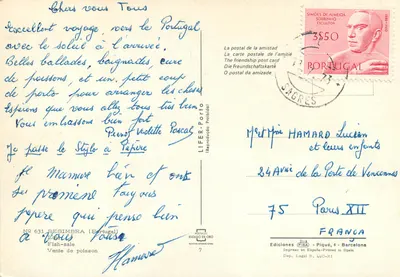 Chers vous Tous
Excellent voyage vers le Portugal
avec le soleil à l'arrivée.
Belles ballades, baignades, cure
de poissons, et un petit coup
de porto pour arranger les choses
Espérons que vous allez tous très bien
Vous embrassons bien fort
Pierre Violette Pascal
Je passe le Stylo à Pépère
Mamie bien et ont
se promène toujours
pépère qui pense bien
à vous Tous
Hamard
NR 631 SESIMBRA (Portugal)
Fish-sale
Vente de poisson
LIFER-Porto
(Reproduction interdite)
7
La postal de la amistad
La carte postale de l'amitié
The friendship post card
Die Freundschaftskarte
O postal da amizade
3$50
PORTUGAL
SAGRES
Mr et Mme HAMARD Lucien
et leurs enfants
24 Ave de la Porte de Vincennes
75 Paris XII
FRANÇA
Ediciones FISA - Piqué, 4 - Barcelona